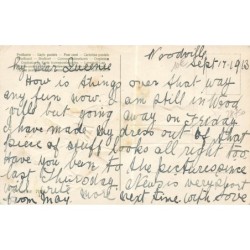 Woodville
Sept 17. 1913
My Dear Queenie
How is things over that way
any fun now. I am still in Wood
ville but going away on Friday
I have made my dress out of that
piece of stuff looks all right too.
Have you been to the pictures since
last Thursday
will write more next time with love
from May.